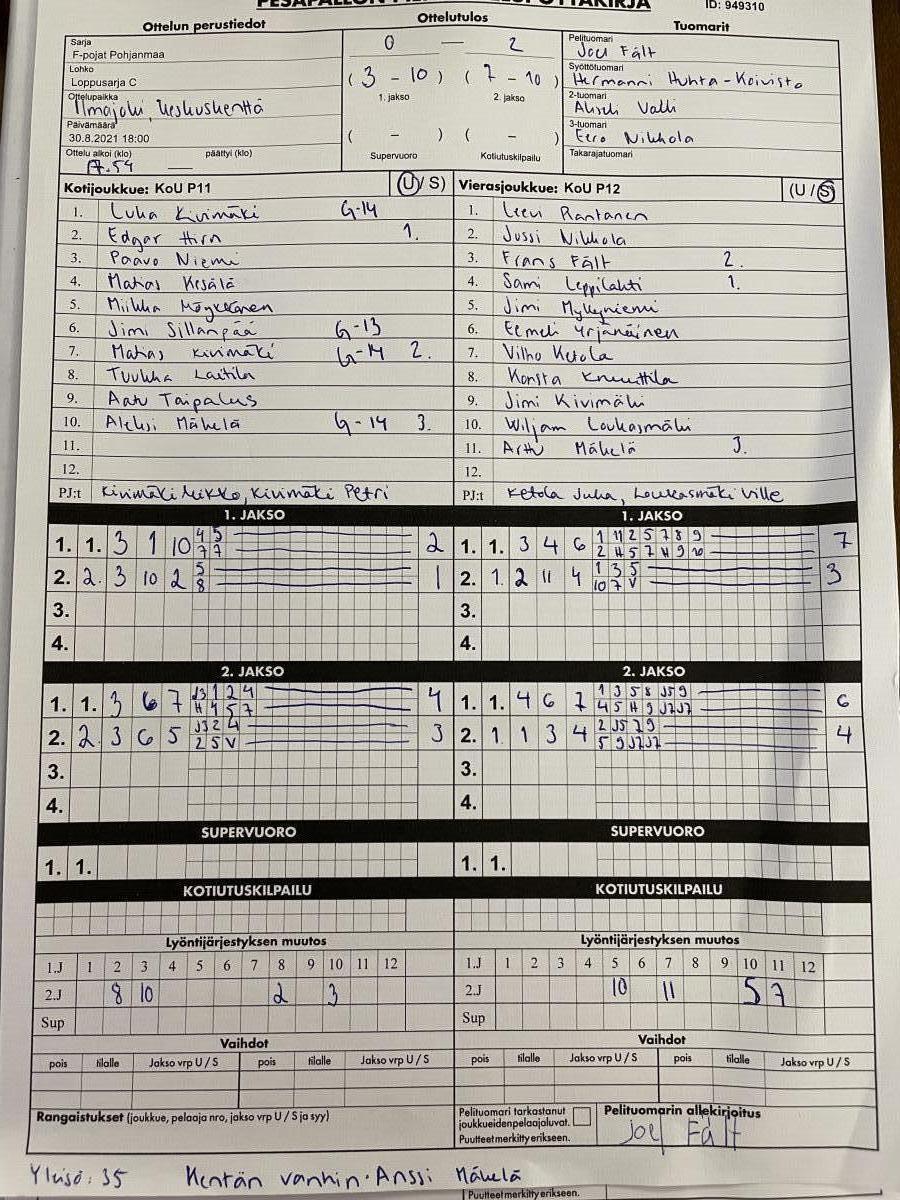 ID: 949310
Ottelun perustiedot
Ottelutulos
Tuomarit
Sarja
F-pojat Pohjanmaa
Lohko
Loppusarja C
Ottelupaikka
Ilmajoki, keskuskenttä
Päivämäärä
30.8.2021 18:00
Ottelu alkoi (klo) päättyi (klo)
17.54
0 — 2
(3 - 10) (7 - 10)
1. jakso 2. jakso
( - ) ( - )
Supervuoro Kotiutuskilpailu
Pelituomari
Joel Fält
Syöttötuomari
Hermanni Huhta-Koivisto
2-tuomari
Valli
3-tuomari
Eero Nikkola
Takarajatuomari
Kotijoukkue: KoU P11 (U/ S)
1. Luka Kivimäki G-14
2. Edgar Hirn 1.
3. Paavo Niemi
4. Matias Kesälä
5. Miikka Möykkänen
6. Jimi Sillanpää G-13
7. Matias Kivimäki G-14 2.
8. Tuukka Laitila
9. Aatu Taipalus
10. Aleksi Mäkelä G-14 3.
11.
12.
PJ:t Kivimäki Mikko, Kivimäki Petri
Vierasjoukkue: KoU P12 (U /S)
1. Leevi Rantanen
2. Jussi Nikkola
3. Frans Fält 2.
4. Sami Leppilahti 1.
5. Jimi Myllyniemi
6. Eemeli Yrjänäinen
7. Vilho Ketola
8. Konsta Knuuttila
9. Jimi Kivimäki
10. Wiljam Loukasmäki
11. Arttu Mäkelä 3.
12.
PJ:t Ketola Juha, Loukasmäki Ville
1. JAKSO
1. 1. 3 1 10 4 5 2
7 7
2. 2. 3 10 2 5 1
8
3.
4.
1. JAKSO
1. 1. 3 4 6 1 11 2 5 7 8 9 7
2 H 5 7 H 9 10
2. 1. 2 11 4 1 3 5 3
10 7 V
3.
4.
2. JAKSO
1. 1. 3 6 7 J3 1 2 4 4
H 4 5 7
2. 2. 3 6 5 J3 2 4 3
2 5 V
3.
4.
2. JAKSO
1. 1. 4 6 7 1 3 5 8 J5 9 6
4 5 H 9 J7 J7
2. 1 1 3 4 2 J5 7 9 4
5 9 J7 J7
3.
4.
SUPERVUORO
1. 1.
SUPERVUORO
1. 1.
KOTIUTUSKILPAILU
KOTIUTUSKILPAILU
Lyöntijärjestyksen muutos
1.J 1 2 3 4 5 6 7 8 9 10 11 12
2.J 8 10 2 3
Sup
Lyöntijärjestyksen muutos
1.J 1 2 3 4 5 6 7 8 9 10 11 12
2.J 10 11 5 7
Sup
Vaihdot
pois tilalle Jakso vrp U / S pois tilalle Jakso vrp U / S
Vaihdot
pois tilalle Jakso vrp U / S pois tilalle Jakso vrp U / S
Rangaistukset (joukkue, pelaaja nro, jakso vrp U / S ja syy)
Pelituomari tarkastanut
joukkueidenpelaajaluvat.
Puutteet merkitty erikseen.
Pelituomarin allekirjoitus
Joel Fält
Yleisö: 35 Kentän vanhin. Anssi Mäkelä
Puutteet merkitty erikseen.